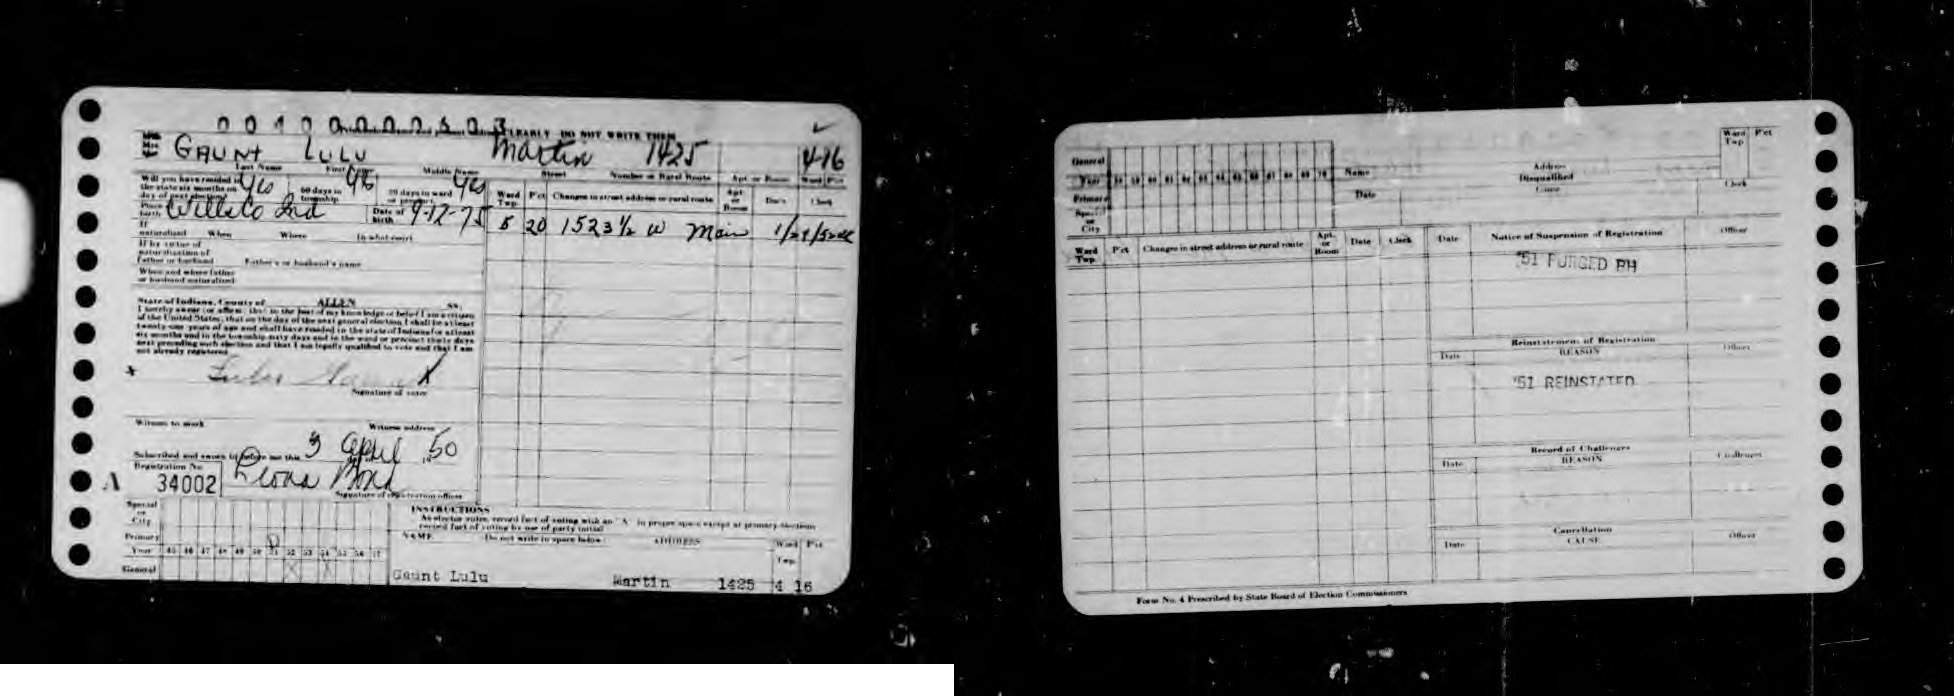 CLEARLY DO NOT WRITE THEM
GAUNT LULU Martin 1425 4-16
Last Name First Middle Name Street Number or Rural Route Apt. or Room Ward Pct
Will you have resided in the state six months on day of next election? Yes 60 days in township Yes 30 days in ward or precinct Yes
Ward Twp. P'ct Changes in street address or rural route Apt. or Room Date Clerk
Place birth Wells Co Ind Date of birth 9-12-75
5 20 1523 1/2 W Main
If naturalized When Where In what court
If by virtue of naturalization of father or husband Father's or husband's name
When and where father or husband naturalized
State of Indiana, County of ALLEN ss.
I hereby swear (or affirm) that to the best of my knowledge or belief I am a citizen
of the United States; that on the day of the next general election I shall be at least
twenty-one years of age and shall have resided in the state of Indiana for at least
six months and in the township sixty days and in the ward or precinct thirty days
next preceding such election and that I am legally qualified to vote and that I am
not already registered
x Lulu Gaunt X
Signature of voter
Witness to mark Witness address
Subscribed and sworn to before me this 3 April 50
Registration No.
A 34002 Leona Bond
Signature of registration officer
Special or City
Primary
Year 45 46 47 48 49 50 51 52 53 54 55 56 57
General X X
INSTRUCTIONS
As elector votes, record fact of voting with an "X" in proper space except at primary elections
record fact of voting by use of party initial
NAME Do not write in space below ADDRESS Ward Twp. P'ct
Gaunt Lulu Martin 1425 4 16
General
Year 58 59 60 61 62 63 64 65 66 67 68 69 70
Primary
Special or City
Name Address Ward Twp P'ct
Date Disqualified Cause Clerk
Ward Twp. P'ct Changes in street address or rural route Apt. or Room Date Clerk
Date Notice of Suspension of Registration Officer
'51 PURGED PH
Reinstatement of Registration
Date REASON Officer
'51 REINSTATED
Record of Challenges
Date REASON Challengers
Cancellation
Date CAUSE Officer
Form No. 4 Prescribed by State Board of Election Commissioners